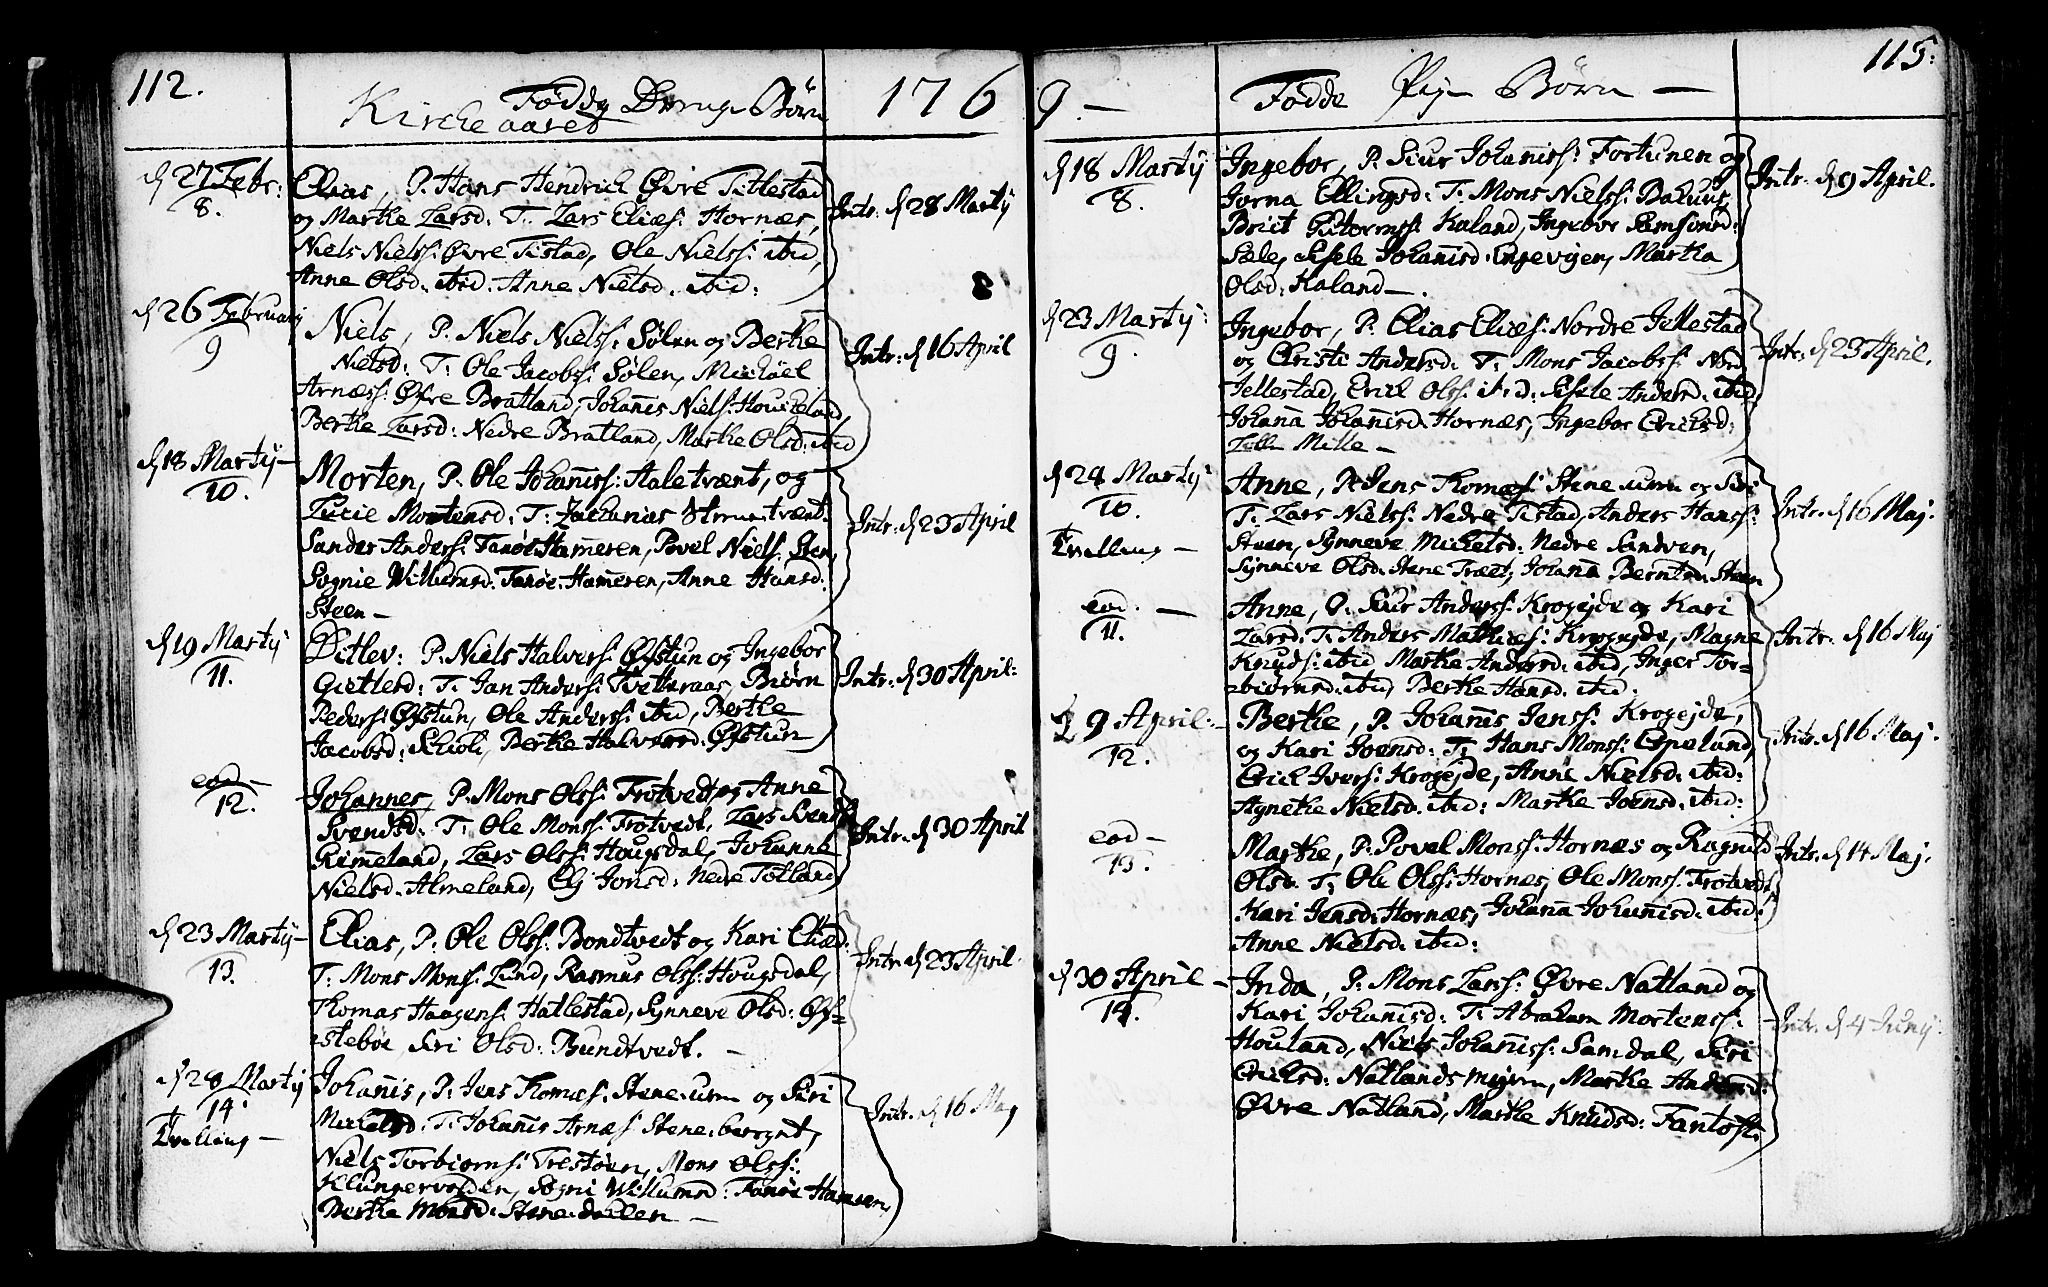 112.
Kirche aaret
Fødde Drenge Børn
176
d 27 Febr:
8.
Elias, P. Hans Hendrich Øvre Titlestad
og Marthe Larsd: T. Lars Eliæs: Hornæs,
Niels Nielss: Øvre Tistad, Ole Nielss: ibid,
Anne Olsd: ibid: Anne Nielsd. ibid:
Intr: d 28 Martij
d 26 Februarij
9
Niels, P. Niels Nielss: Sølen og Berthe
Nielsd: T: Ole Jacobs: Sølen, Michael
Arnæss: Øvre Bratland, Johanis Niels:
Berthe Larsd: Nedre Bratland, Marthe Olsd: ibid
Intr: d 16 April
d 18 Martij -
10.
Morten, P. Ole Johaniss: Haletræet, og
Lucie Mortensd: T: Zacharias
Sander Anders: Tarøe Hameren, Povel Niels: Sten,
Sognie Willumsd: Tarøe Hameren, Anne Hansd:
Steen -
Intr: d 23 April
d 19 Martij
11.
Ditlev: P. Niels Halvers: Øfstun og Ingebor
Gietlesd: T. Jan Anders: Tvetteraas, Biørn
Peders: Øfstun, Ole Anderss: ibid, Berthe
Jacobsd: Skiold, Berthe Halvorsd: Øfstun
Intr: d 30 April:
eod -
12.
Johannes, P. Mons Olss: Trotvedt og Anne
Svendsd: T: Ole Monss: Trotvedt, Lars Svends
Rimeland, Lars Olss: Hougsdal, Johanne
Nielsd. Almeland, Eli Jonsd: Nedre Totland
Intr: d 30 April
d 23 Martij -
13.
Elias, P. Ole Olss: Bondtvedt og Kari Eliæd:
T. Mons Mons: Lund, Rasmus Olss: Hougsdal,
Thomas Haagens: Hatlestad, Synneve Olsd: Øf=
=stebøe, Siri Olsd: Bundtvedt. -
Intr d 23 April
d 28 Martij
14.
Tvilling -
Johanis, P. Jens Thomæs: Stene-urn og Siri
Michelsd: T. Johanis Arnæs: Stene,
Niels Torbiørns: Trestøen, Mons Olss:
Klungervolden, Sogni Willumsd: Tarøe Hameren,
Berthe Monsd: Stene-dallen -
Intr. d 16 Maj
9. -
Fødde Pige Børn -
115.
d 18 Martij
8.
Ingebor, P. Siur Johaniss: Fortunen og
Jorna Ellingsd: T. Mons Nielss:
Briet Guttorms: Kaland, Ingebor Samsonsd:
Sæle, Sisele Johanisd: Engevigen, Martha
Olsd: Kaland -.
Intr. d 9 April.
d 23 Martij:
9.
Ingebor, P. Elias Eliæs: Nordre Jellestad
og Christi Andersd: T. Mons Jacobss: Nord
Jellestad, Erich Olss: ibid: Sisele Andersd: ibid,
Johana Johanisd: Hornæs, Ingebor Erichsd:
Lille Mille -
Intr: d 23 April.
d 24 Martij
10.
Tvilling -
Anne, P. Jens Thomæs: Stene urn og Siri
T. Lars Nielss: Nedre Tistad, Anders Hanss:
Steen, Synneve Michelsd: Nedre Sandven,
Synneve Olsd: Stene Træet, Johana Berntsd: Steen
Intr: d 16 Maj.
eod. -
11.
Anne, P. Siur Anderss: Krogejde og Kari
Larsd: T. Anders Mathiæs: Krogejde, Magne
Knuds: ibid Marthe Andersd: ibid, Inger Tor=
=biørnsd: ibid, Berthe Hansd. ibid.
Intr: d 16 Maj
d 9 April: -
12.
Berthe, P. Johanis Jenss: Krogejde,
og Kari Joensd: T. Hans Monss: Espeland,
Erich Ivers: Krogejde, Anne Nielsd: ibid:
Agnethe Nielsd: ibid: Marthe Joensd: ibid:
Intr. d 16 Maj.
eod -
13.
Marthe, P. Povel Monss: Hornæs og Ragnild
Olsd. T. Ole Olss: Hornæs, Ole Monss: Trotvedt,
Kari Jensd: Hornæs, Johana Johanisd: ibid:
Anne Nielsd: ibid:
Intr: d 14 Maj.
d 30 April -
14.
Inda, P. Mons Larss: Øvre Natland og
Kari Johanisd: T. Abraham Mortenss:
Houland, Niels Johaniss: Samdal, Siri
Erichsd: Natlands myren, Marthe Andersd:
Øvre Natland, Marthe Knudsd: Fantoft:
Intr. d 4 Junij.